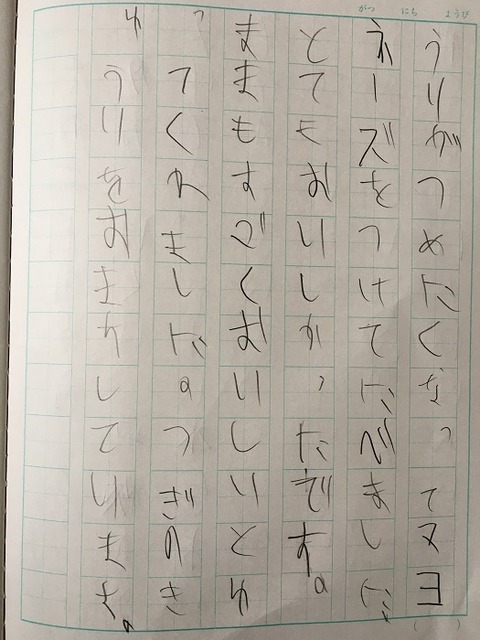 がつ にち ようび
うりがつめたくなってヌヨ
ネーズをつけてたべました
とてもおいしかったです。
ままもすごくおいしいとゆ
ってくれました。つぎのき
ゅうりをおまちしています。